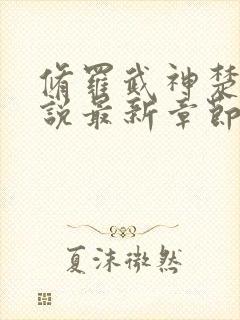 脩羅武神楚
說最新章節
夏沫微然